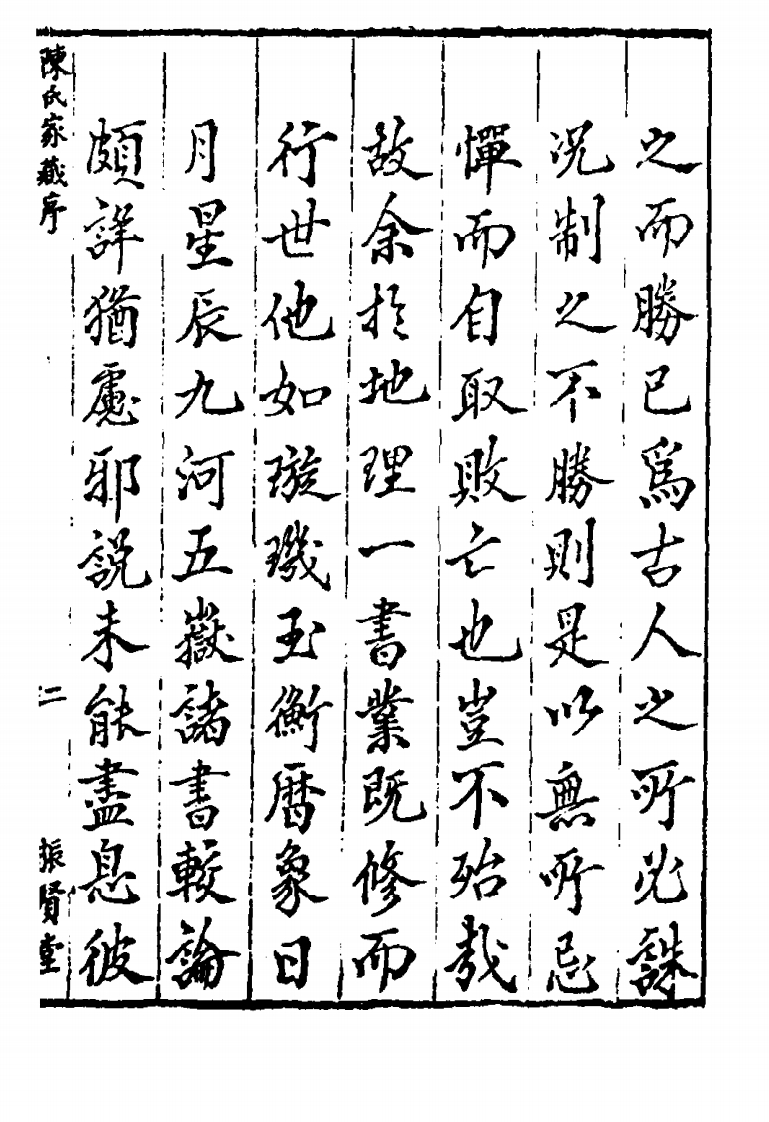 之而勝已爲古人之所必誅
况制之不勝則是以無所忌
憚而自取敗亡也豈不殆哉
故余於地理一書業既修而
行世他如璇璣玉衡曆象日
月星辰九河五嶽諸書較論
頗詳猶慮邪説未能盡息彼
陳氏家藏序
二
振賢堂